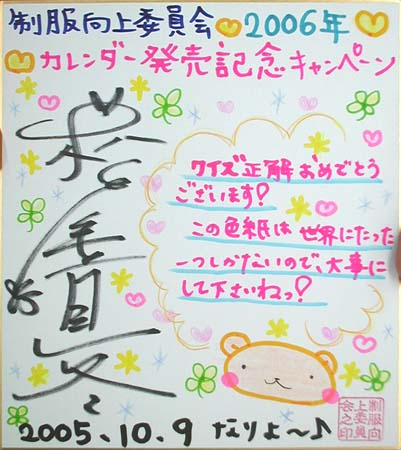 制服向上委員会 2006年
カレンダー発売記念キャンペーン
クイズ正解おめでとう
ございます!
この色紙は世界にたった
一つしかないので、大事に
して下さいねっ!
2005.10.9 なりよ〜♪
制服向
上委員
会之印